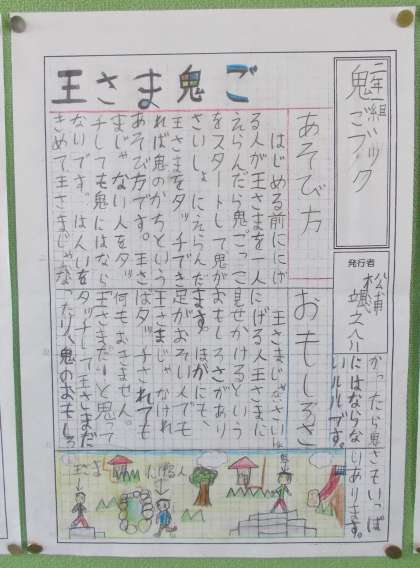 王さま鬼ご
二年一組
鬼ごブック
発行者
松浦颯之介
あそび方
はじめる前ににげ
る人が王さまを一人
えらんだら鬼ごっこ
をスタートして鬼が
さいしょにえらんだ
王さまをタッチでき
れば鬼のかちという
あそび方です。王さ
まじゃない人をタッ
チしても鬼にはなら
ないです。はんいを
きめて王さまじゃな
かったら鬼
にはならな
いルールです。
おもしろさ
王さまじゃない
にげる人王さまに
見せかけるという
おもしろさがあり
ます。ほかにも、
足がおそい人でも
王さまじゃなけれ
ばタッチされても
何もおきません。
王さまだーと思って
タッチして王さまだ
ったり、鬼のおもしろ
さもいっぱ
いあります。
王さま
にげる人